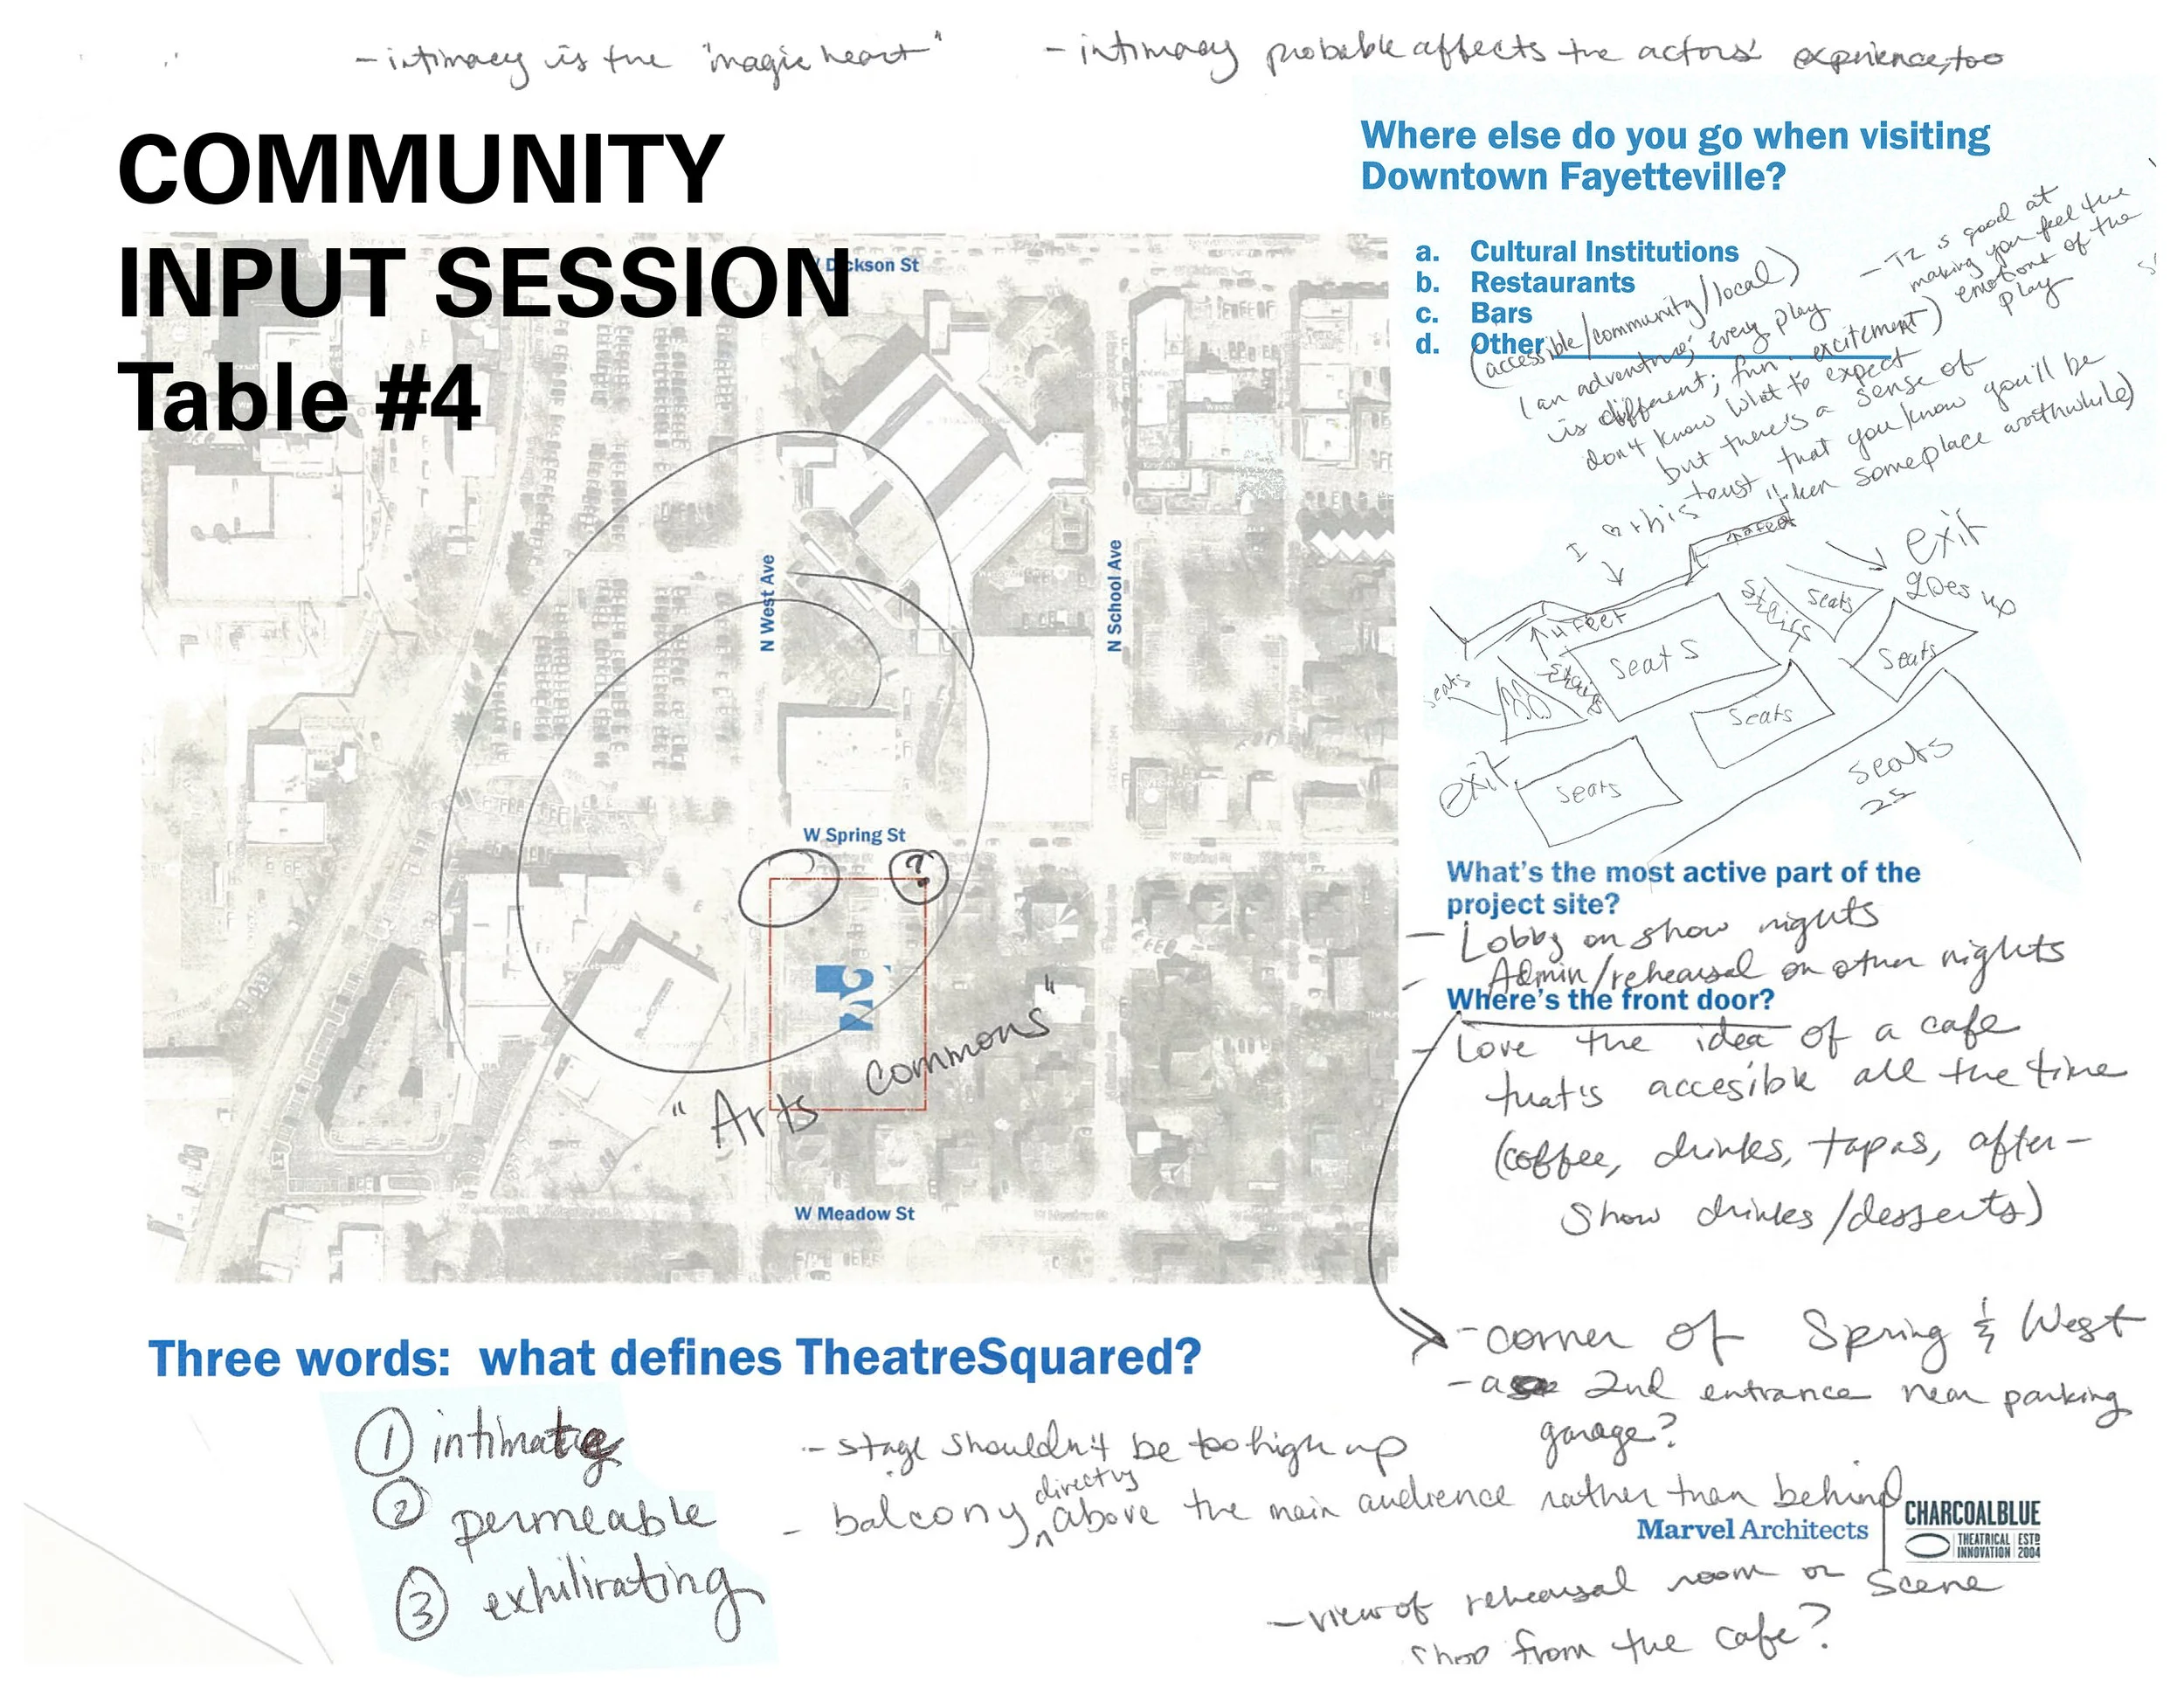 - intimacy is the "magic heart"
- intimacy probable affects the actors' experience, too
COMMUNITY
INPUT SESSION
Table #4
W Dickson St
N West Ave
N School Ave
W Spring St
?
"Arts commons"
W Meadow St
Where else do you go when visiting
Downtown Fayetteville?
a. Cultural Institutions
b. Restaurants
c. Bars
d. Other
(accessible/community/local)
(an adventure; every play
is different; fun excitement)
don't know what to expect
but there's a sense of
trust that you know you'll be
taken someplace worthwhile)
- T2 is good at
making you feel the
emotions of the
play
I this
2 feet
exit
goes up
stairs
seats
4 feet
seats
seats
stairs
seats
seats
exit
seats
seats
25
What's the most active part of the
project site?
- Lobby on show nights
- Admin/rehearsal on other nights
Where's the front door?
- Love the idea of a cafe
that's accesible all the time
(coffee, drinks, tapas, after-
show drinks/desserts)
- corner of Spring & West
- a 2nd entrance near parking
garage?
Three words: what defines TheatreSquared?
① intimate
② permeable
③ exhilirating
- stage shouldn't be too high up
- balcony directly above the main audience rather than behind
Marvel Architects
CHARCOALBLUE
THEATRICAL INNOVATION
ESTD 2004
- view of rehearsal room or scene
shop from the cafe?